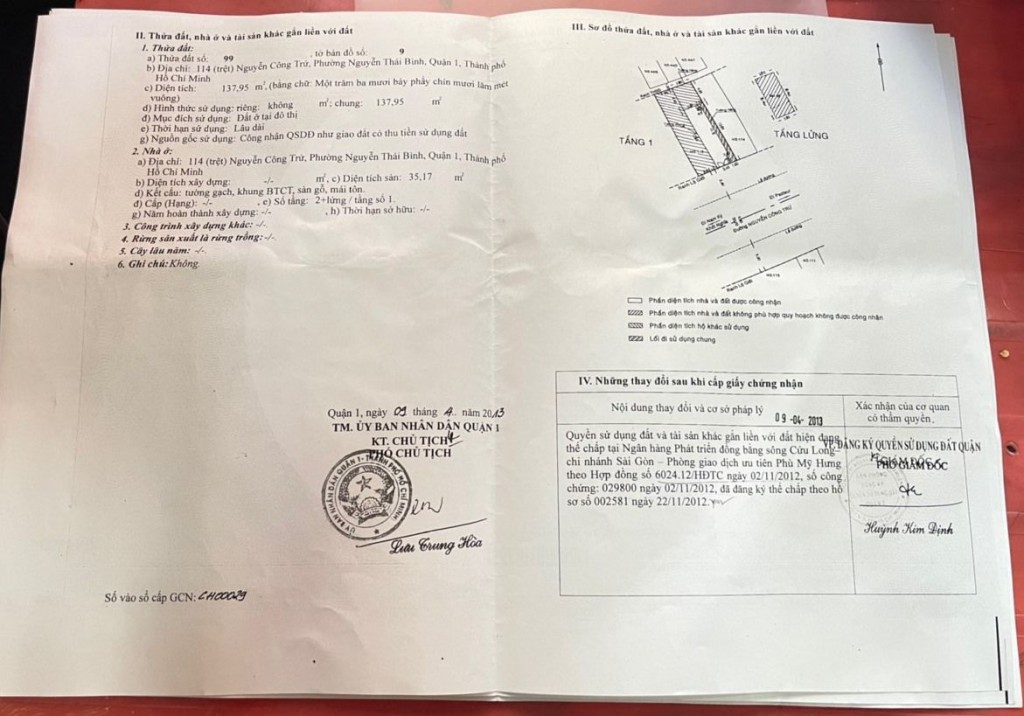 II. Thửa đất, nhà ở và tài sản khác gắn liền với đất
1. Thửa đất:
a) Thửa đất số: 99 , tờ bản đồ số: 9
b) Địa chỉ: 114 (trệt) Nguyễn Công Trứ, Phường Nguyễn Thái Bình, Quận 1, Thành phố
Hồ Chí Minh
c) Diện tích: 137,95 m², (bằng chữ: Một trăm ba mươi bảy phẩy chín mươi lăm mét
vuông)
d) Hình thức sử dụng: riêng: không m²; chung: 137,95 m²
đ) Mục đích sử dụng: Đất ở tại đô thị
e) Thời hạn sử dụng: Lâu dài
g) Nguồn gốc sử dụng: Công nhận QSDĐ như giao đất có thu tiền sử dụng đất
2. Nhà ở:
a) Địa chỉ: 114 (trệt) Nguyễn Công Trứ, Phường Nguyễn Thái Bình, Quận 1, Thành phố
Hồ Chí Minh
b) Diện tích xây dựng: -/- m², c) Diện tích sàn: 35,17 m²
d) Kết cấu: tường gạch, khung BTCT, sàn gỗ, mái tôn.
đ) Cấp (Hạng): -/- , e) Số tầng: 2+lửng / tầng số 1.
g) Năm hoàn thành xây dựng: -/- , h) Thời hạn sở hữu: -/-
3. Công trình xây dựng khác: -/-
4. Rừng sản xuất là rừng trồng: -/-
5. Cây lâu năm: -/-
6. Ghi chú: Không.
Quận 1, ngày 09 tháng 4 năm 2013
TM. ỦY BAN NHÂN DÂN QUẬN 1
KT. CHỦ TỊCH
PHÓ CHỦ TỊCH
ỦY BAN NHÂN DÂN QUẬN 1 - THÀNH PHỐ HỒ CHÍ MINH
Lưu Trung Hòa
Số vào sổ cấp GCN: CH00029
III. Sơ đồ thửa đất, nhà ở và tài sản khác gắn liền với đất
TẦNG 1
TẦNG LỬNG
Ranh Lộ Giới
Lề đường
Đi Nam Kỳ
Khởi Nghĩa
Đi Pasteur
Đường NGUYỄN CÔNG TRỨ
Lề đường
Ranh Lộ Giới
Phần diện tích nhà và đất được công nhận
Phần diện tích nhà và đất không phù hợp quy hoạch không được công nhận
Phần diện tích hộ khác sử dụng
Lối đi sử dụng chung
IV. Những thay đổi sau khi cấp giấy chứng nhận
Nội dung thay đổi và cơ sở pháp lý
09-04-2013
Xác nhận của cơ quan
có thẩm quyền
Quyền sử dụng đất và tài sản khác gắn liền với đất hiện đang
thế chấp tại Ngân hàng Phát triển đồng bằng sông Cửu Long
chi nhánh Sài Gòn – Phòng giao dịch ưu tiên Phú Mỹ Hưng
theo Hợp đồng số 6024.12/HĐTC ngày 02/11/2012, số công
chứng: 029800 ngày 02/11/2012, đã đăng ký thế chấp theo hồ
sơ số 002581 ngày 22/11/2012.
VP. ĐĂNG KÝ QUYỀN SỬ DỤNG ĐẤT QUẬN
GIÁM ĐỐC
PHÓ GIÁM ĐỐC
Huỳnh Kim Định